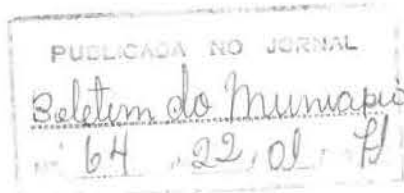 PUBLICADA NO JORNAL
Boletim do Municipio
Nº 64 , 22, 01